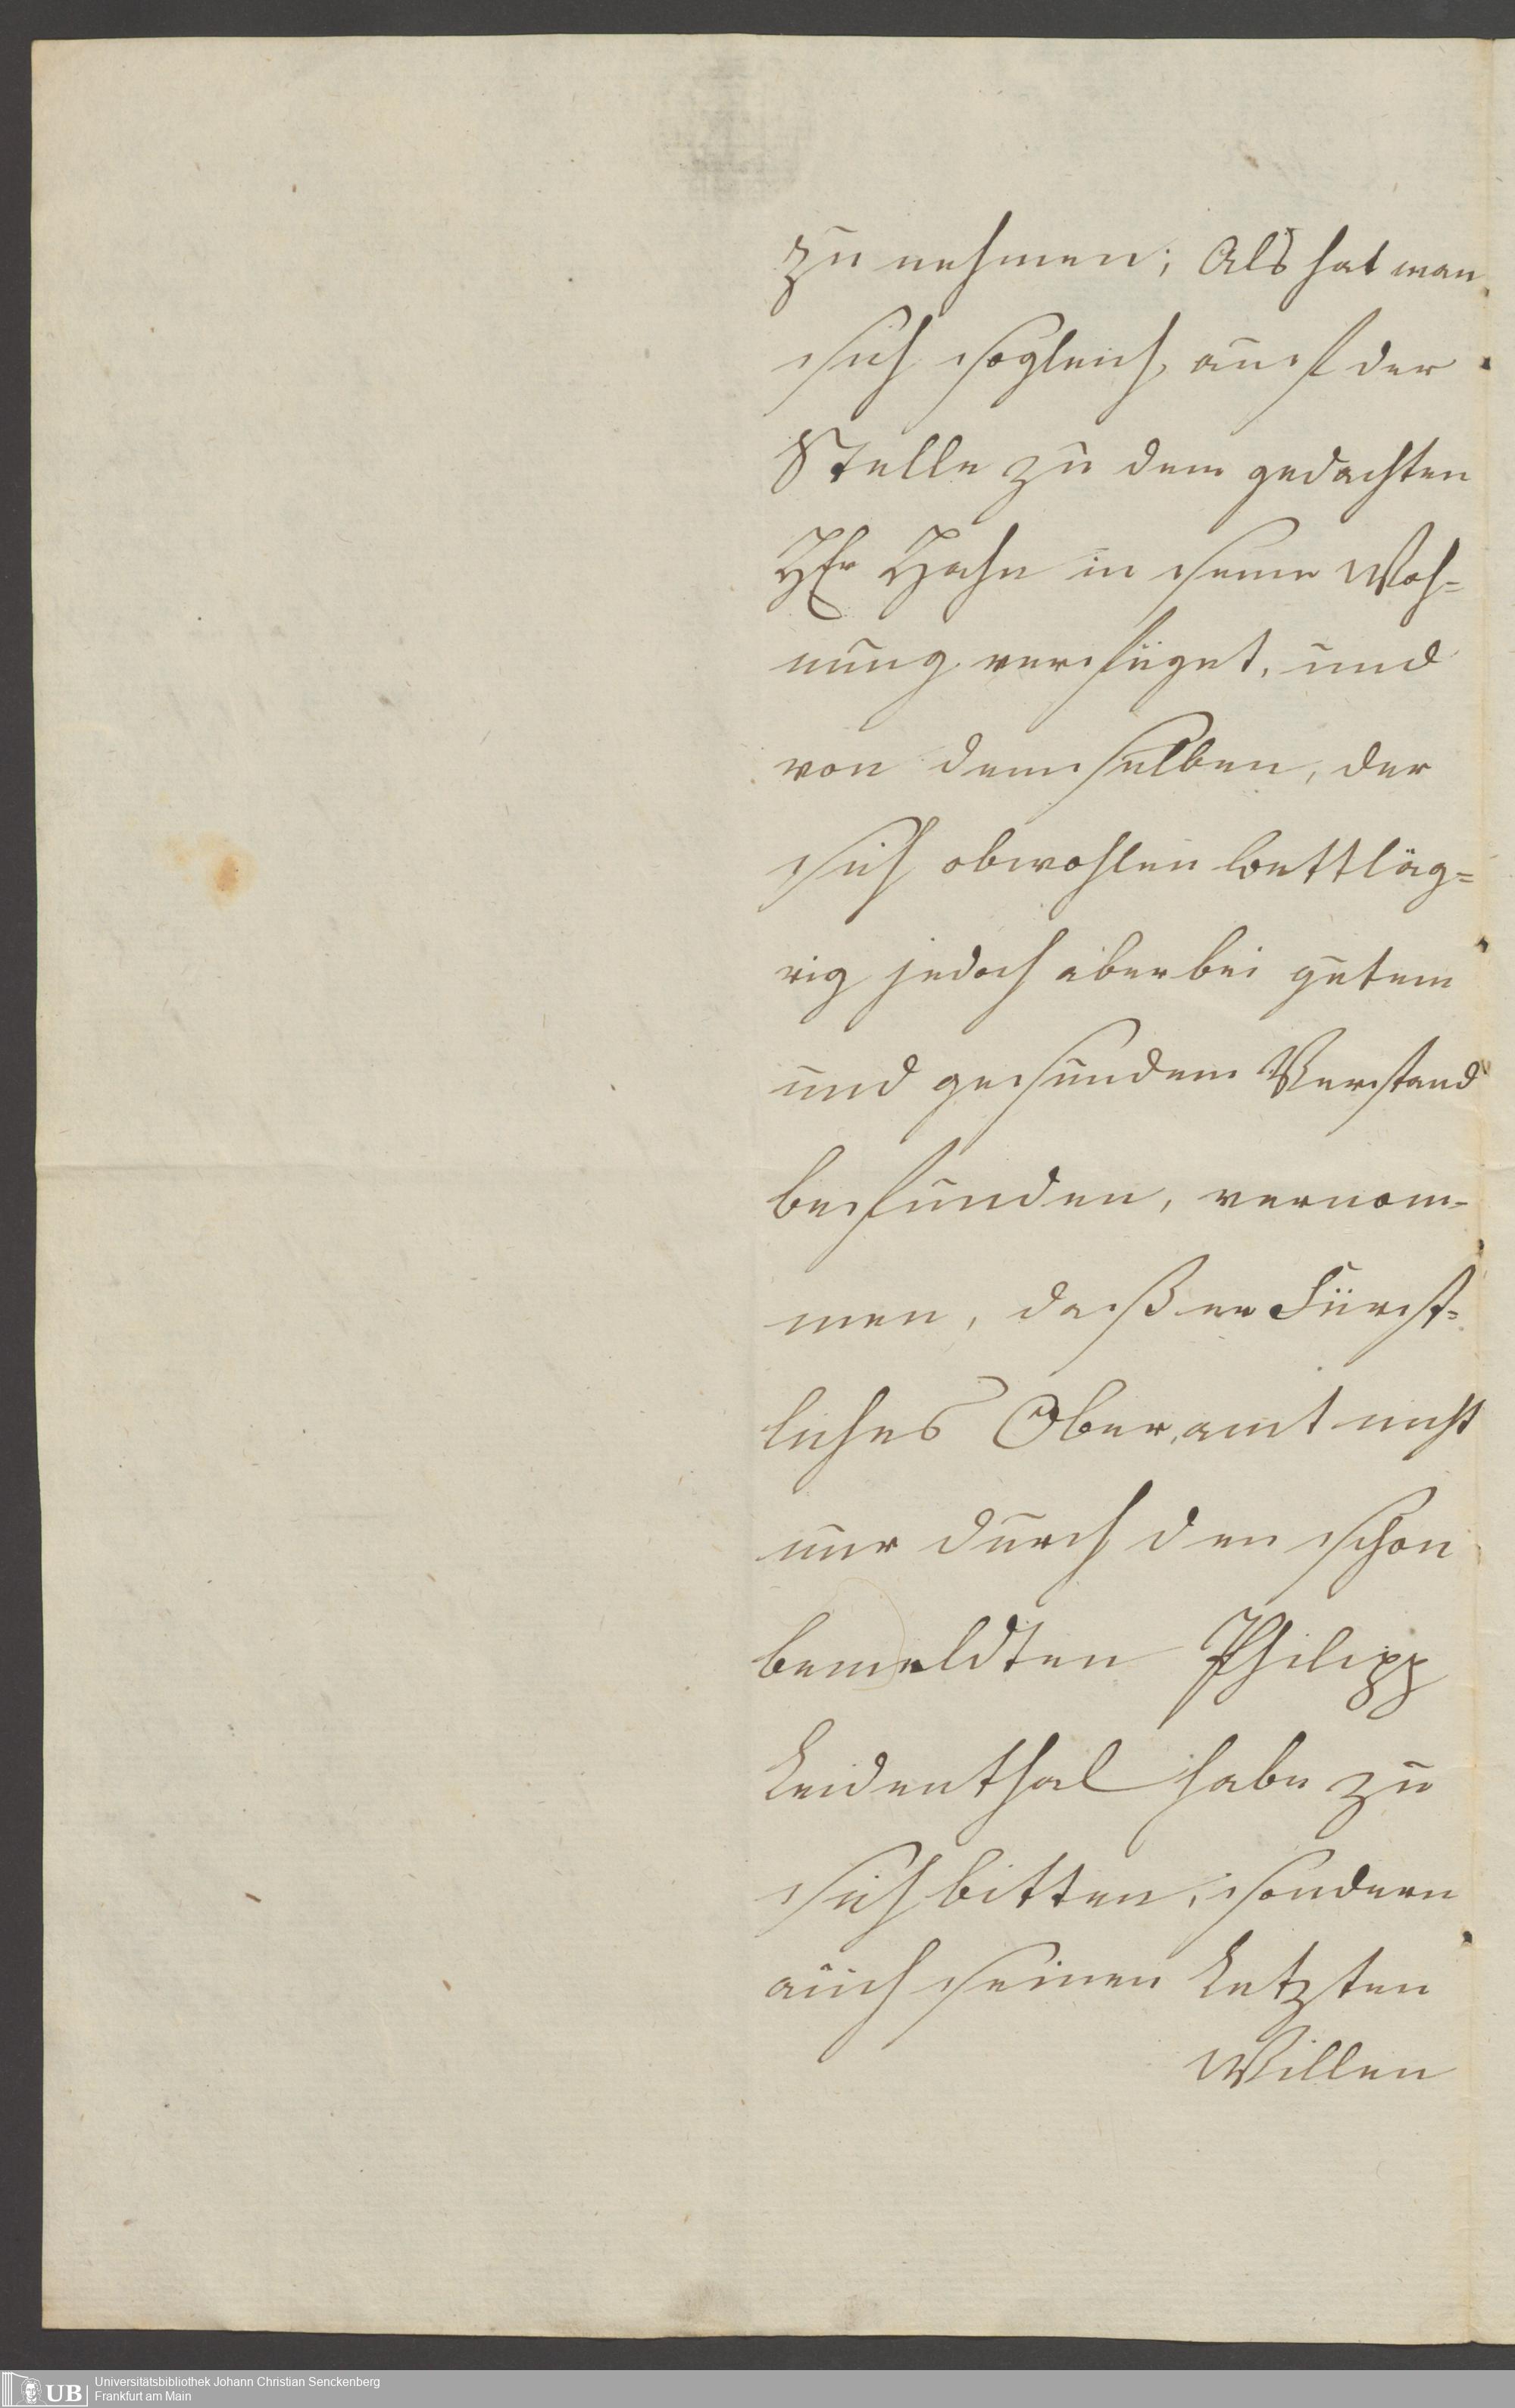 zu nehmen; Als hat man
sich sogleich auf der
Stelle zu dem gedachten
HEr Hahn in seine Woh=
nung verfüget, und
von demselben, der
sich obwohlen bettläg=
rig jedoch aber bei gutem
und gesundem Verstand
befunden, vernom=
men, daß er Fürst=
liches Oberamt nicht
nur durch den schon
bemeldten Philipp
Leidenthal habe zu
sich bitten, sondern
auch seinen Letzten
Willen
UB
Universitätsbibliothek Johann Christian Senckenberg
Frankfurt am Main